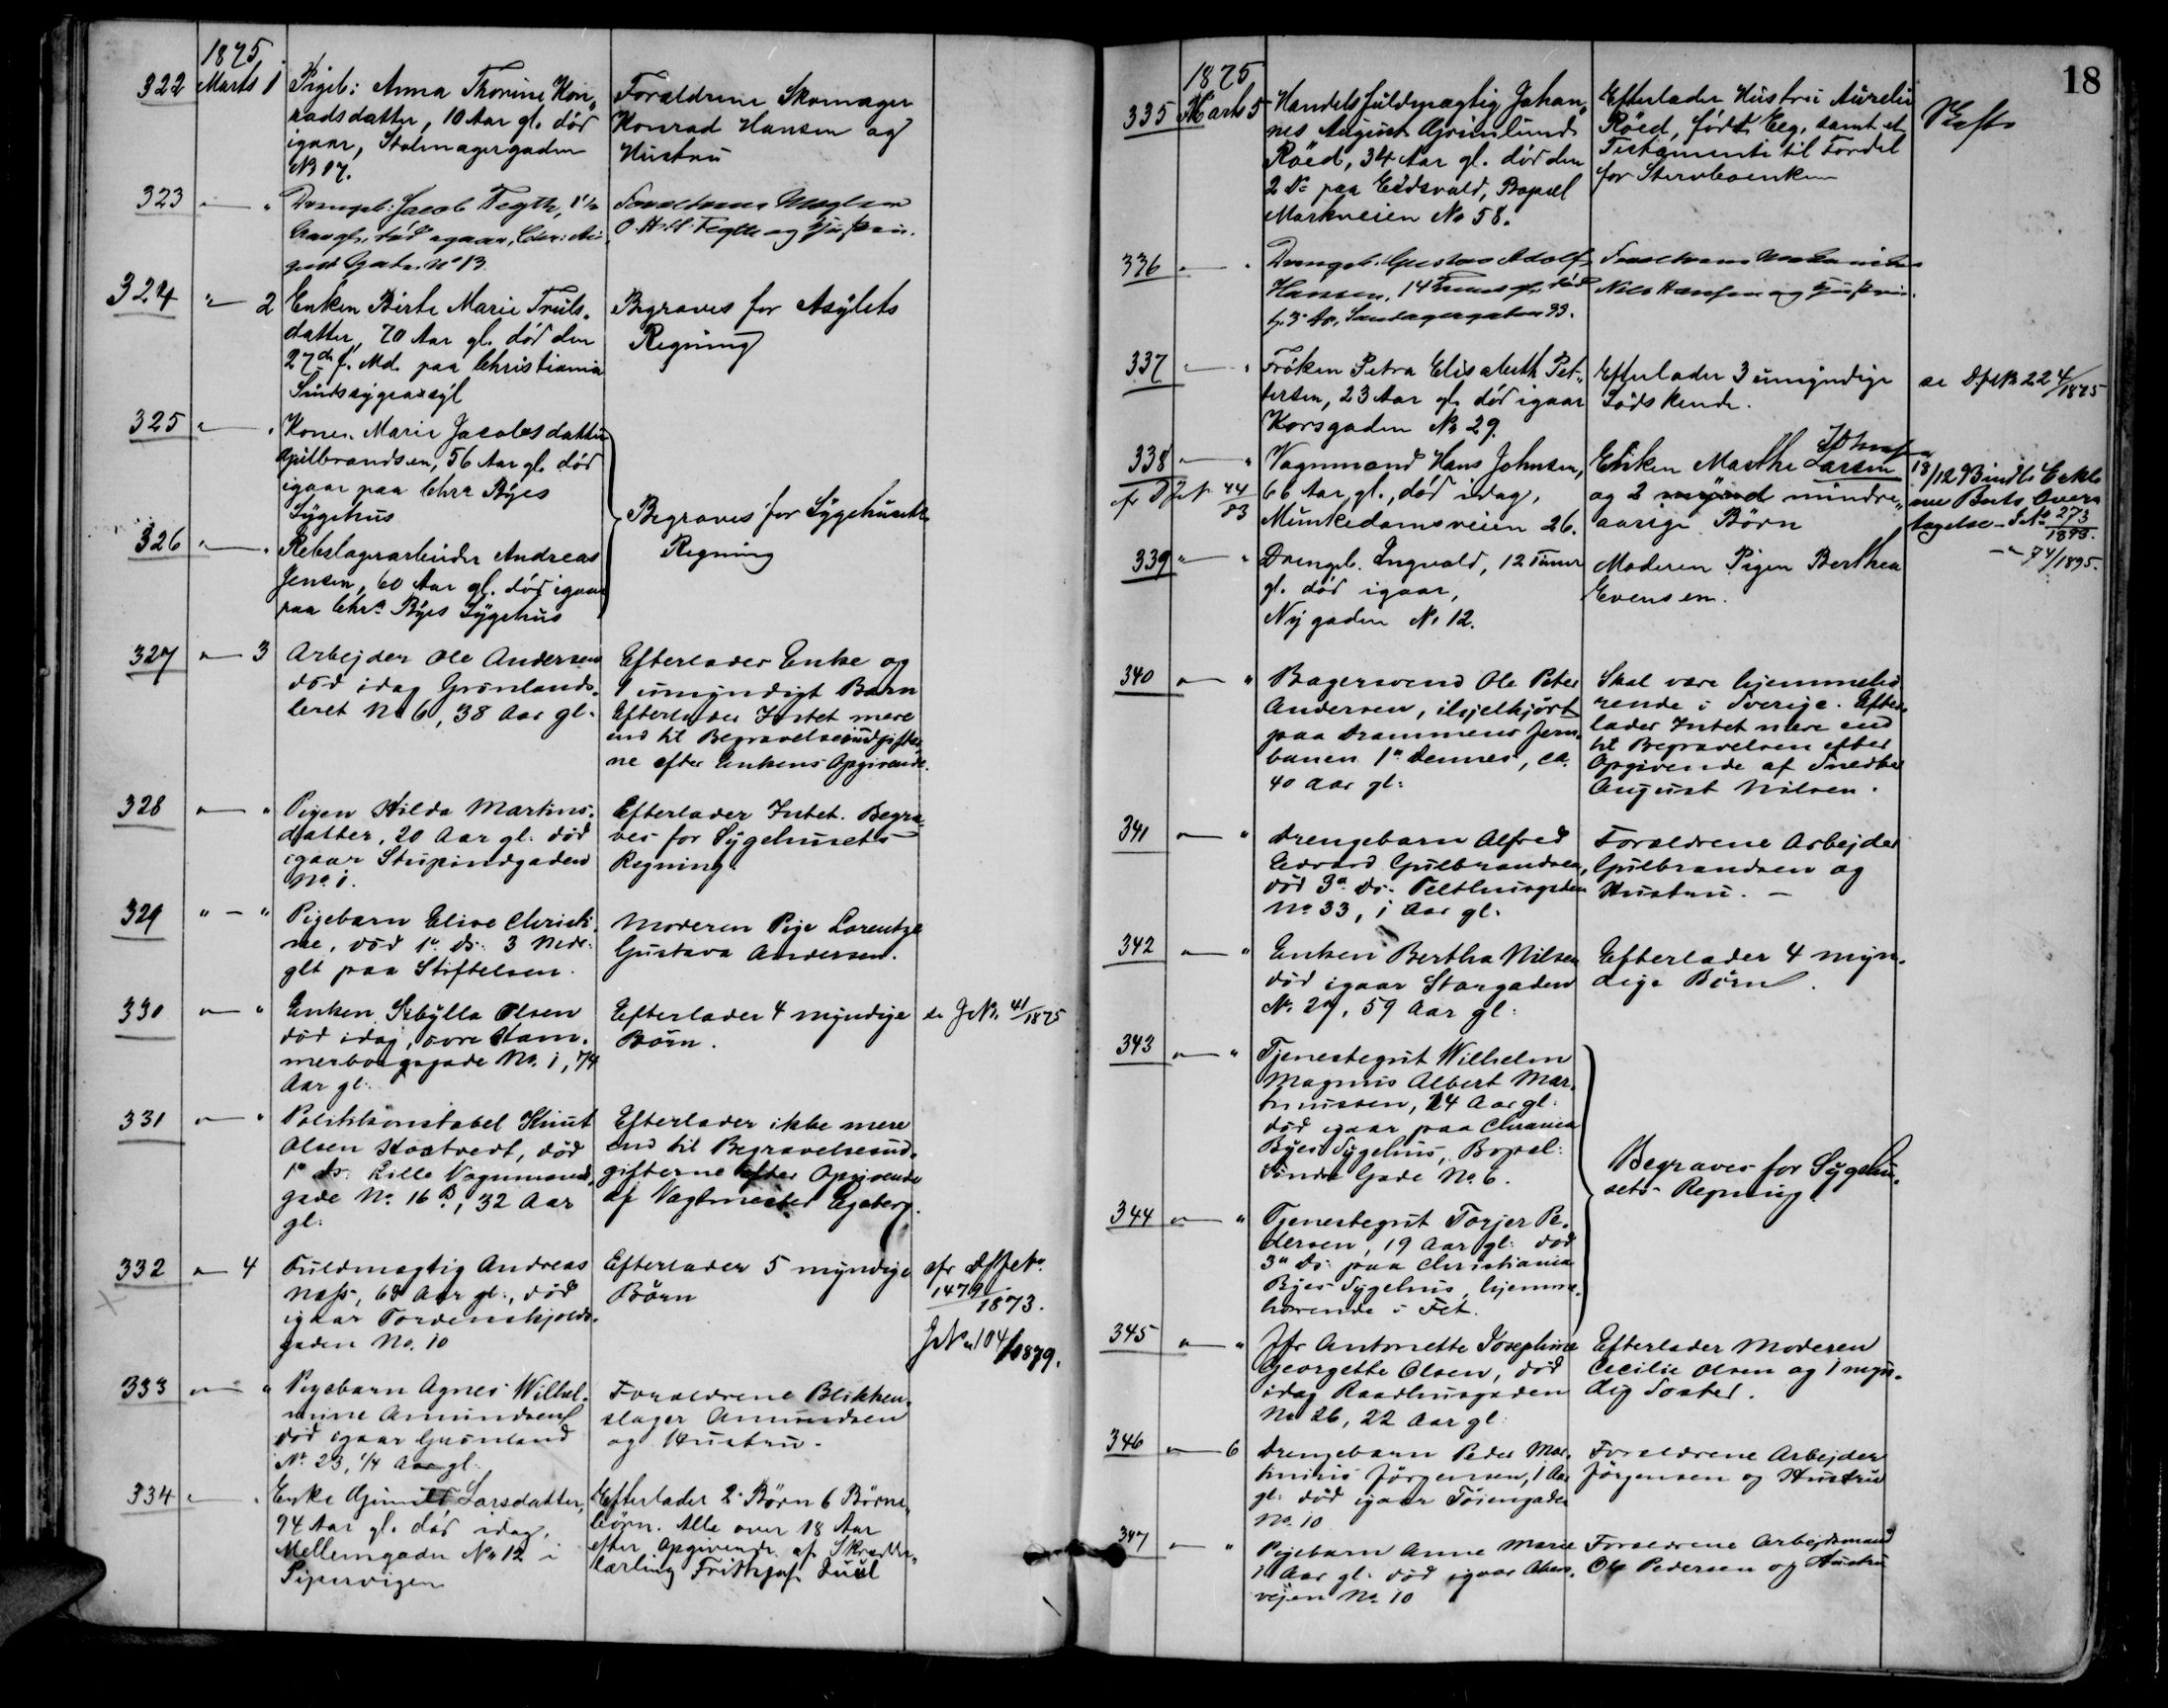 1875
322 Marts 1 Pigeb: Anna Thorine Kon„
radsdatter, 10 Aar gl. död
igaar, Stolmagergaden
No 17.
Forældrene Skomager
Konrad Hansen og
Hustru
323 " — " Drengeb: Jacob Tegth,
Aar gl. död igaar,
Gade No 13.
Forældrene
Tegth og Hustru.
324 " — 2 Enken Birte Marie Truls„
datter, 70 Aar gl. död den
27de f. Md. paa Christiania
Sindssygeasyl
Begraves for Asylets
Regning
325 " — " Kone Marie Jacobsdatter
Gulbrandsen, 56 Aar gl. död
igaar paa Chra Byes
Sygehus
326 " — " Rebslagerarbeider Andreas
Jensen, 60 Aar gl. död igaar
paa Chra Byes Sygehus
Begraves for Sygehusets
Regning
327 " — 3 Arbejder Ole Andersen
död idag Grønlands-
leret No 6, 38 Aar gl.
Efterlader Enke og
1 umyndigt Barn
Efterlader Intet mere
end til Begravelsesudgifter„
ne efter Enkens Opgivende.
328 " — " Pigen Hilda Martins-
datter, 20 Aar gl. död
igaar Stupindgaden
No. 1.
Efterlader Intet. Begra-
ves for Sygehusets
Regning.
329 " — " Pigebarn Elise Christi-
ne, död 1ste ds: 3 Mdr:
glt paa Stiftelsen.
Moderen Pige Lorentze
Gustava Andersen.
330 " — " Enken Sibylla Olsen
död idag, övre Ham-
merborggade No. 1, 74
Aar gl.
Efterlader 4 myndige
Börn.
se J.No. 41/1875
331 " — " Politikonstabel Knut
Olsen Kostvedt, död
1ste ds: Lille Vognmands-
gade No. 16 B, 32 Aar
gl:
Efterlader ikke mere
end til Begravelsesud-
gifterne efter Opgivende
af Vagtmester Egeberg.
332 " — 4 Fuldmægtig Andreas
Næss, 63 Aar gl:, död
igaar Tordenskjolds-
gaden No. 10
Efterlader 5 myndige
Börn
cfr DfJNo.
1479/1873.
JNo 104/1879.
333 " — " Pigebarn Agnes Wilhel-
mine Amundsen
död igaar Grønland
No 23, 1/4 Aar gl:
Forældrene Blikken-
slager Amundsen
og Hustru.
334 " — " Enke Gunild Larsdatter,
94 Aar gl. död idag,
Mellemgaden No 12 i
Pipervigen
Efterlader 2 Börn 6 Börne„
börn. Alle over 18 Aar
efter Opgivende af Skrædder„
lærling Frithjof Juul
18
1875
335 Marts 5 Handelsfuldmægtig Johan„
nes August Grimlund
Röed, 34 Aar gl. död den
2 ds paa Eidsvold, Bopæl
Markveien No 58.
Efterlader Hustru Aurelie
Röed, född Eeg, samt et
Testamente til Fordel
for Stervboenken
Skifte
336 " — " Drengeb. Gustav Adolf
Hansen, 14 Timer gl. död
33.
Forældrene
Nils Hansen og Hustru.
337 " — " Fröken Petra Elisabeth Pet„
tersen, 23 Aar gl. död igaar
Korsgaden No 29.
Efterlader 3 umyndige
Södskende.
se DfNo 224/1875
338 " — " Vognmand Hans Johnsen,
66 Aar gl., död idag,
Munkedamsveien 26.
cfr DJNo 44/83
Johnsen
Enken Marthe Larsen
og 2 mynd mindre„
aarige Börn
18/12 93 indb. Erkl.
om Boets Over„
tagelse - JNo 273/1893.
— " 74/1895.
339 " — " Drengeb. Ingvald, 12 Timer
gl. död igaar,
Nygaden No 12.
Moderen Pigen Berthea
Evensen.
340 " — " Bagersvend Ole Peter
Andersen, ihjelkjørt
paa Drammens Jern-
banen 1ste dennes, ca.
40 Aar gl:
Skal være hjemmehö-
rende i Sverige. Efter-
lader Intet mere end
til Begravelsen efter
Opgivende af Snedker
August Nilsen.
341 " — " Drengebarn Alfred
Edvard Gulbrandsen,
död 3die ds: Telthusgaden
No 33, 1 Aar gl.
Forældrene Arbejder
Gulbrandsen og
Hustru. —
342 " — " Enken Bertha Nilsen
död igaar Storgaden
No. 27, 59 Aar gl:
Efterlader 4 myn-
dige Börn.
343 " — " Tjenestegut Wilhelm
Magnus Albert Mar-
tinussen, 24 Aar gl:
död igaar paa Chrania
Byes Sygehus, Bopæl:
Söndre Gade No. 6.
344 " — " Tjenestegut Torjer Pe-
dersen, 19 Aar gl: död
3die ds: paa Christiania
Byes Sygehus, hjemme-
hørende i Fet.
Begraves for Sygehu-
sets Regning.
345 " — " Jfr Antonette Josephine
Georgette Olsen, död
idag Raadhusgaden
No 26, 22 Aar gl:
Efterlader Moderen
Cecilie Olsen og 1 myn-
dig Søster.
346 " — 6 Drengebarn Peder Mar-
tinius Jörgensen, 1 Aar
gl: död igaar Töiengaden
No. 10
Forældrene Arbejder
Jörgensen og Hustru
347 " — " Pigebarn Anne Marie
1 Aar gl: död igaar Akers-
vejen No. 10
Forældrene Arbejdsmand
Ole Pedersen og Hustru